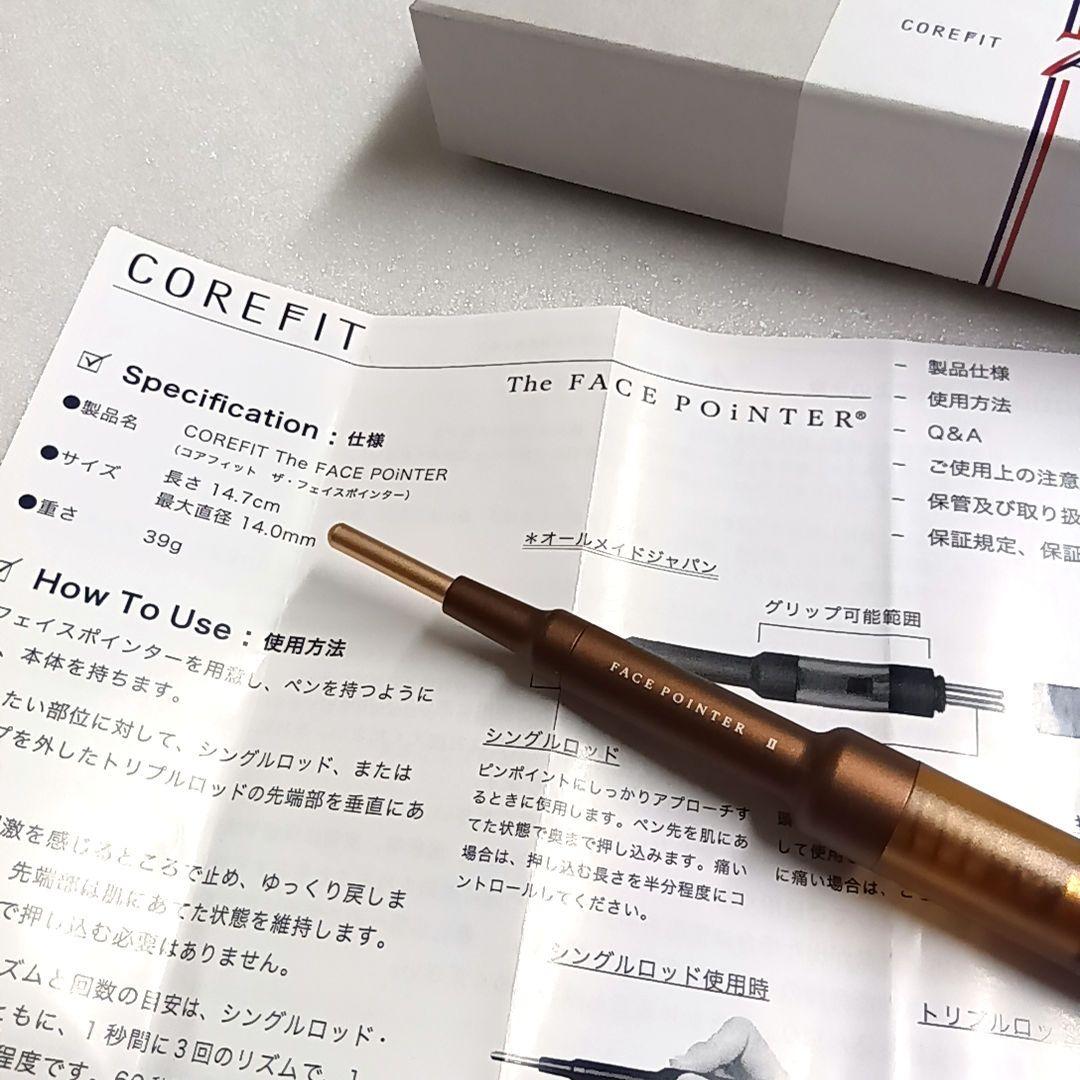 COREFIT
COREFIT
The FACE POiNTER®
Specification：仕様
●製品名
COREFIT The FACE POiNTER
（コアフィット ザ・フェイスポインター）
●サイズ
長さ 14.7cm
最大直径 14.0mm
●重さ
39g
− 製品仕様
− 使用方法
− Q&A
− ご使用上の注意
− 保管及び取り扱
− 保証規定、保証
＊オールメイドジャパン
グリップ可能範囲
FACE POINTER II
How To Use：使用方法
フェイスポインターを用意し、ペンを持つように
、本体を持ちます。
たい部位に対して、シングルロッド、または
プを外したトリプルロッドの先端部を垂直にあ
激を感じるところで止め、ゆっくり戻しま
先端部は肌にあてた状態を維持します。
で押し込む必要はありません。
ズムと回数の目安は、シングルロッド・
ともに、1秒間に3回のリズムで、1
程度です。
シングルロッド
ピンポイントにしっかりアプローチす
るときに使用します。ペン先を肌にあ
てた状態で奥まで押し込みます。痛い
場合は、押し込む長さを半分程度にコ
ントロールしてください。
して使用
に痛い場合は、
シングルロッド使用時
トリプルロッ